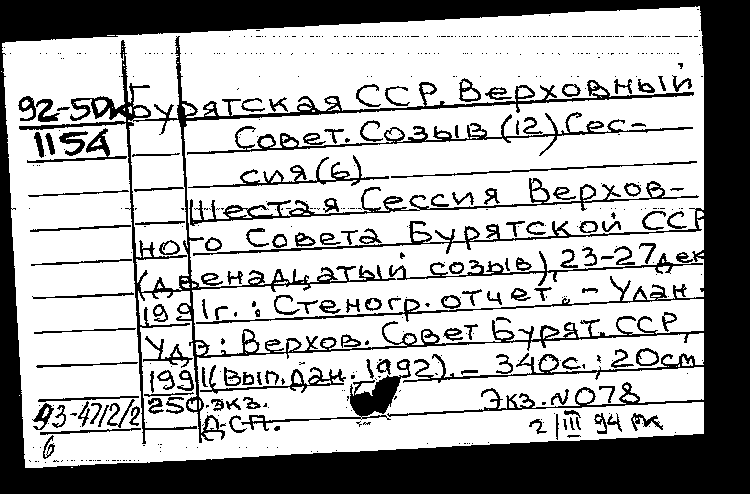 92-5Dк Бурятская ССР. Верховный
1154 Совет. Созыв (12). Сес-
сия (6)
Шестая Сессия Верхов-
ного Совета Бурятской ССР
(двенадцатый созыв), 23-27 дек
1991г.: Стеногр. отчет. - Улан-
Удэ: Верхов. Совет Бурят. ССР,
1991 (вып. дан. 1992). - 340с.; 20см.
93-47/2/2 250 экз. Экз. N 078
6 ДСП. 2/III 94